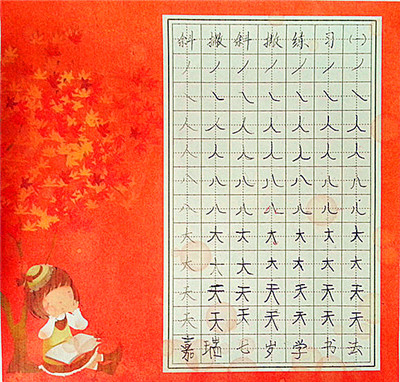 斜撇斜捺练习(一)
丿丿丿丿丿丿丿
㇏㇏㇏㇏㇏㇏㇏
人人人人人人人
人人人人人人人
八八八八八八八
八八八八八八八
大大大大大大大
大大大大大大大
天天天天天天天
天天天天天天天
嘉瑞七岁学书去